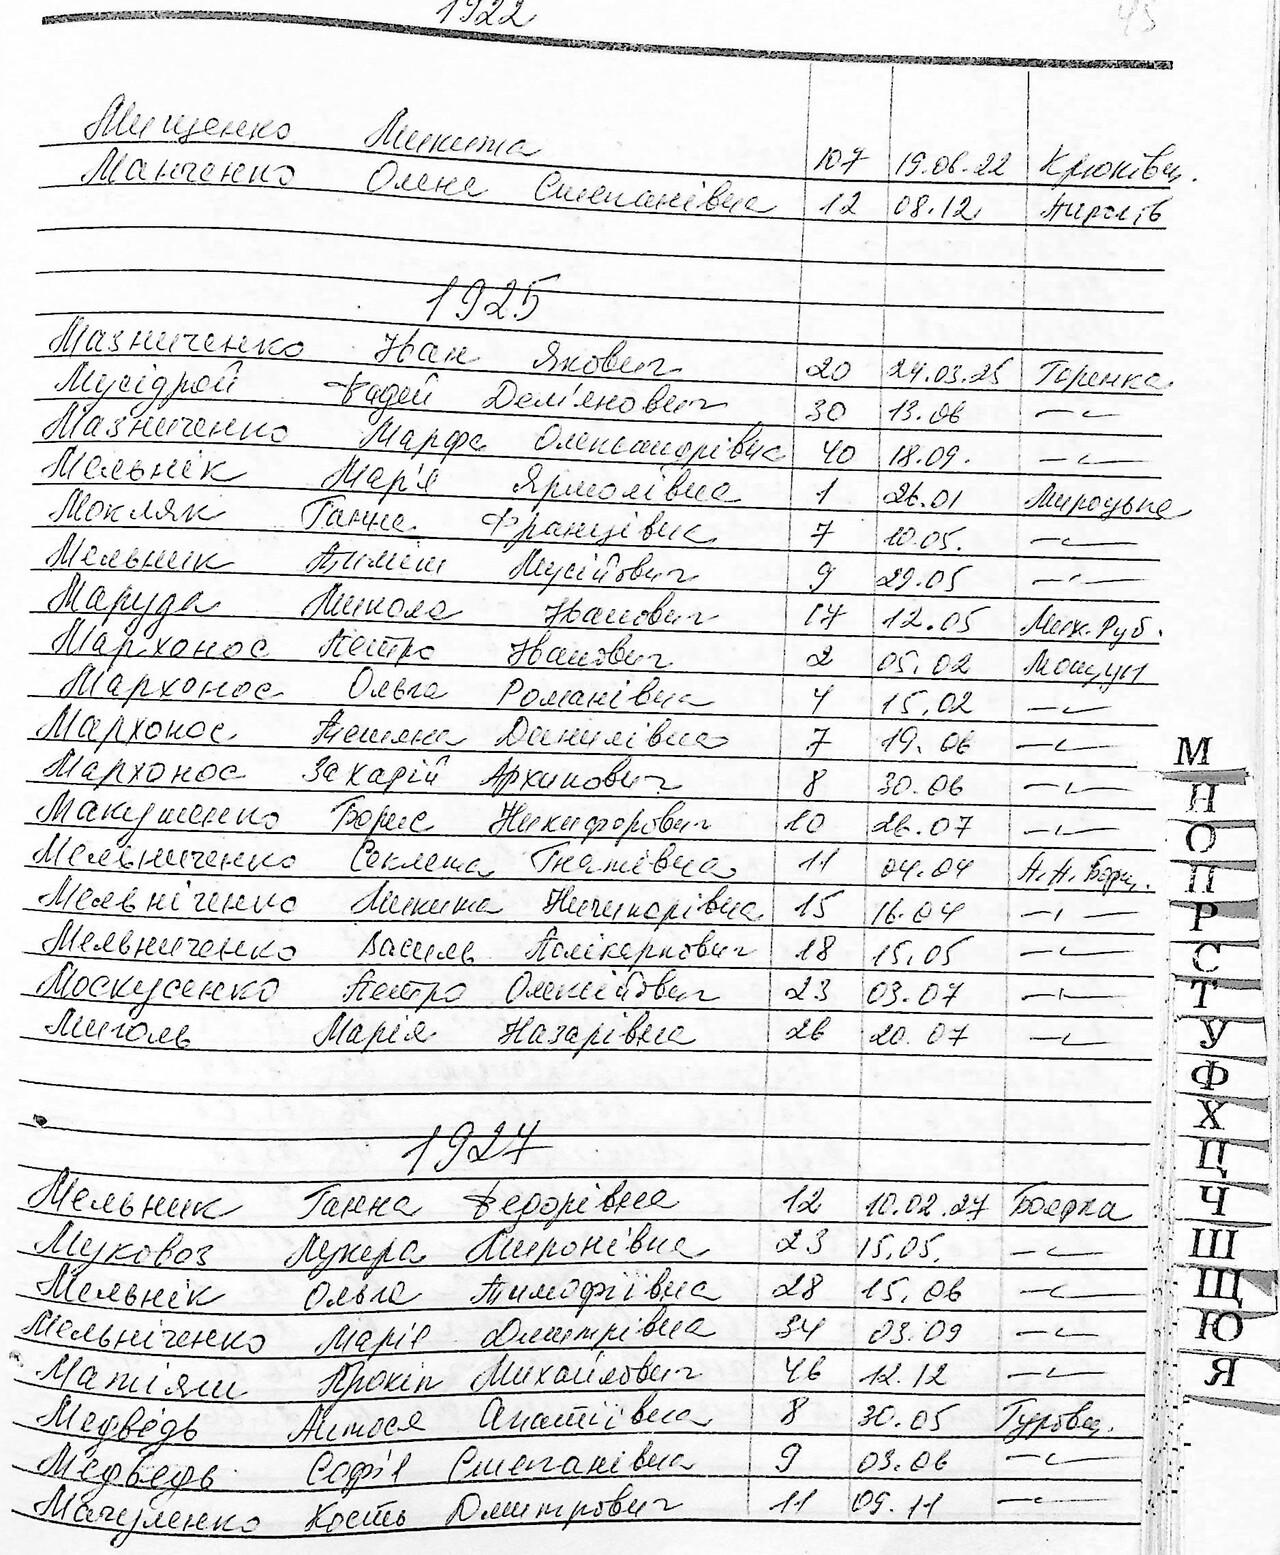 1922
45
Мищенко Микита 107 19.06.22 Крюківщ.
Манченко Олена Степанівна 12 08.12.
1925
Мазниченко Іван Якович 20 24.03.25 Горенка
Мусідрой Фадей Дем'янович 30 13.06 —〃—
Мазниченко Марфа Олександрівна 40 18.09. —〃—
Мельнік Марія Ярмолівна 1 26.01 Мироцьке
Мокляк Ганна Францівна 7 10.05. —〃—
Мельник Тиміш Мусійович 9 29.05 —〃—
Маруда Микола Іванович 17 12.05 Мих.Руб.
Мархонос Петро Іванович 2 05.02 Мощун
Мархонос Ольга Романівна 4 15.02 —〃—
Мархонос Тетяна Данилівна 7 19.06 —〃—
Мархонос Захарій Архипович 8 30.06 —〃—
Макушенко Борис Никифорович 10 26.07 —〃—
Мельниченко Секлета Гнатівна 11 04.04 П.П.Борщ.
Мельніченко Микита Ничипорівна 15 16.04 —〃—
Мельниченко Василь Полікарпович 18 15.05 —〃—
Москусенко Петро Олексійович 23 03.07 —〃—
Миголь Марія Назарівна 26 20.07 —〃—
1927
Мельник Ганна Федорівна 12 10.02.27 Боярка
Муковоз Лукера Миронівна 23 15.05. —〃—
Мельнік Ольга Тимофіївна 28 15.06 —〃—
Мельніченко Марія Дмитрівна 34 03.09 —〃—
Матіяш Прокіп Михайлович 46 12.12 —〃—
Медведь Антося Опатіївна 8 30.05 Гуровщ.
Медведь Софія Степанівна 9 03.06 —〃—
Мачуленко Кость Дмитрович 11 09.11 —〃—
М
Н
О
П
Р
С
Т
У
Ф
Х
Ц
Ч
Ш
Щ
Ю
Я